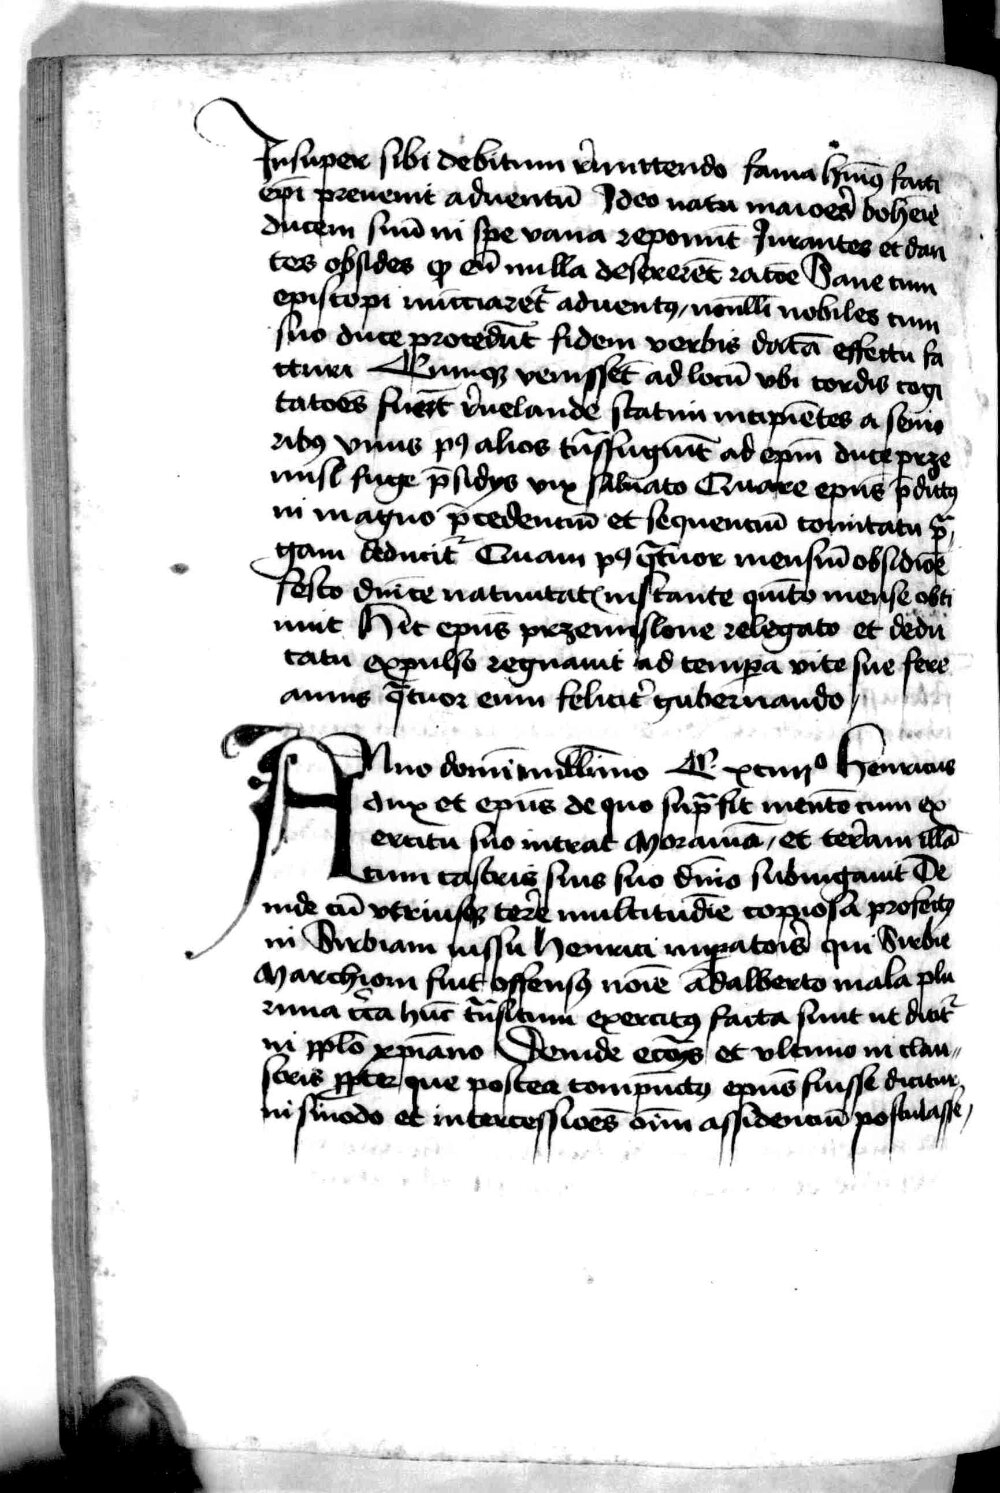 Insuper sibi debitum r̉mittendo fama hui9 facti
ep̅i preuenit aduentu̅ Ideo natu maioꝛes̉ bohe̅ie
ducem suu̅ in spe vana reponu̅t Jurantes et dan
tes obsides ꝙ eu̅ nulla desererēt rato̅e Sane cum
episcopi nu̅cciaret᷑ aduentus, no̅nulli nobiles cum
suo duce procedu̅t fidem verbis datā effectu fa
cturi Cumqꝫ venissēt ad locu̅ vbi cordis cogi
tato̅es fuer̅t r̉uelande statim incipie̅tes a senio
rib9 vnus p9 alios tᷓsfugiu̅t ad epm̅ duce prze
misl fuge p̅sidijs vix saluato Quare epu̅s p̅dict9
in magno p̅cedenciu̅ et sequenciu̅ comitatu pᷓ
gam deducit᷑ Quam p9 qᷓtuor mensiu̅ obsidio̅e
festo dn̅ice natiuitatꝭ instante quinto mense obti
nuit Hic epu̅s przemislone relegato et de du
catu expulso regnauit ad tempora vite sue fere
annis qᷓtuor eum feliciter̉ gubernando /
Anno domi̅ mille̅imo C xciiiio Henricus
dux et epu̅s de quo supᷓ fit mento̅ cum ex
ercitu suo intrat Morauia̅, et ter̉am illā
cum castris suis suo dn̅io subiugauit De
inde cu̅ vtriusqꝫ ter̉e multitudi̅e copiosa profect9
in Sirbiam iussu henrici imperatoꝛis̉ qui Sirbie
Marchioni fuit offensus noi̅e adalberto mala plu
rima cc̉a hu̅c tᷓnsitum exercit9 facta sunt ut dicit᷑
in pplo̅ xpi̅ano Deinde et vltimo in clau„
stris ꝓpter que postea compu̅ct9 epu̅s fuisse dicitur,
in si̅nodo et intercessio̅es oi̅m assidenciu̅ postulasse,